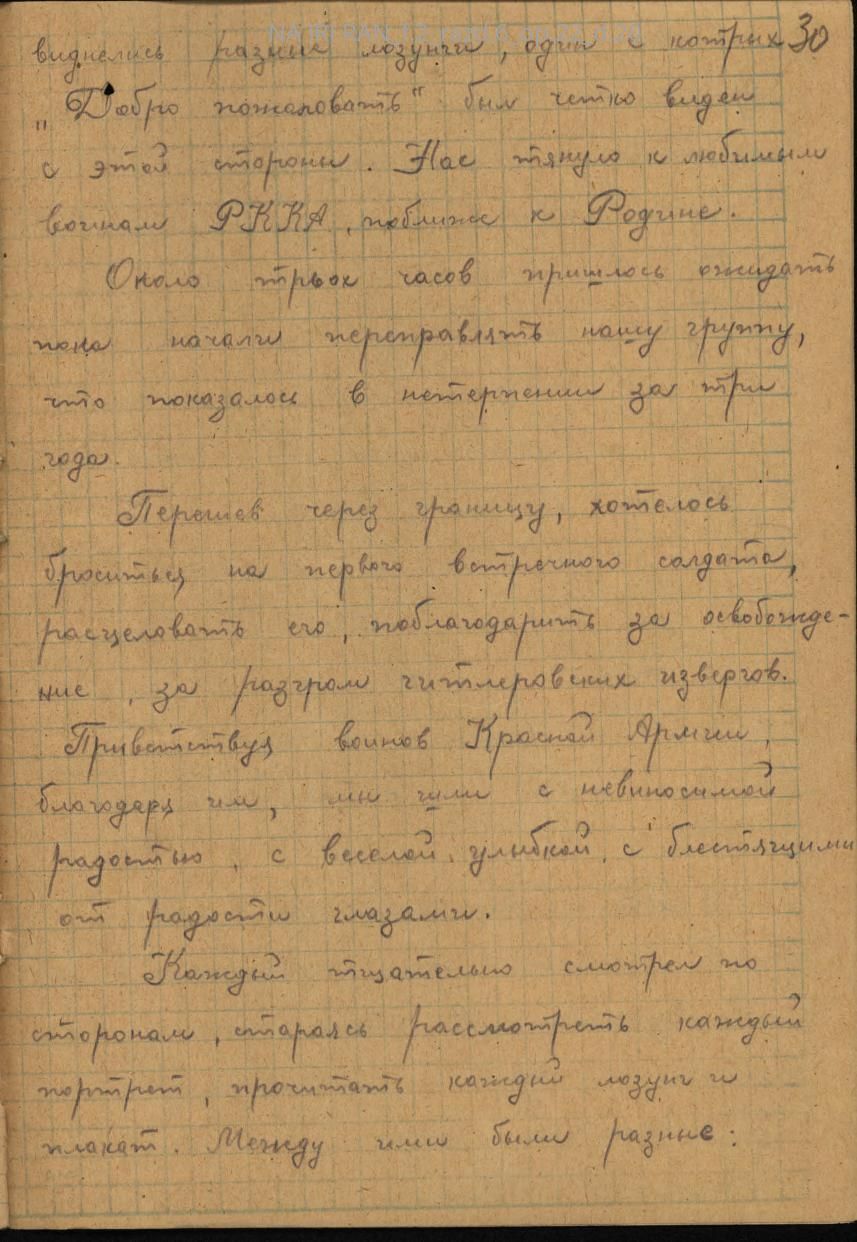 30
виднелись разные лозунги, один с котрых
„Добро пожаловать" был четко виден
с этой стороны. Нас тянуло к любимым
воинам РККА, поближе к Родине.
Около трьох часов пришлось ожидать
пока начали переправлять нашу группу,
что показалось в нетерпении за три
года.
Перешев через границу, хотелось
броситься на первого встречного солдата,
расцеловать его, поблагодарить за освобожде-
ние, за разгром гитлеровских извергов.
Приветствуя воинов Красной Армии,
благодаря им, мы шли с невиносимой
радостью, с веселой улыбкой, с блестящими
от радости глазами.
Каждый тщательно смотрел по
сторонам, стараясь рассмотреть каждый
портрет, прочитать каждый лозунг и
плакат. Между ими были разные: